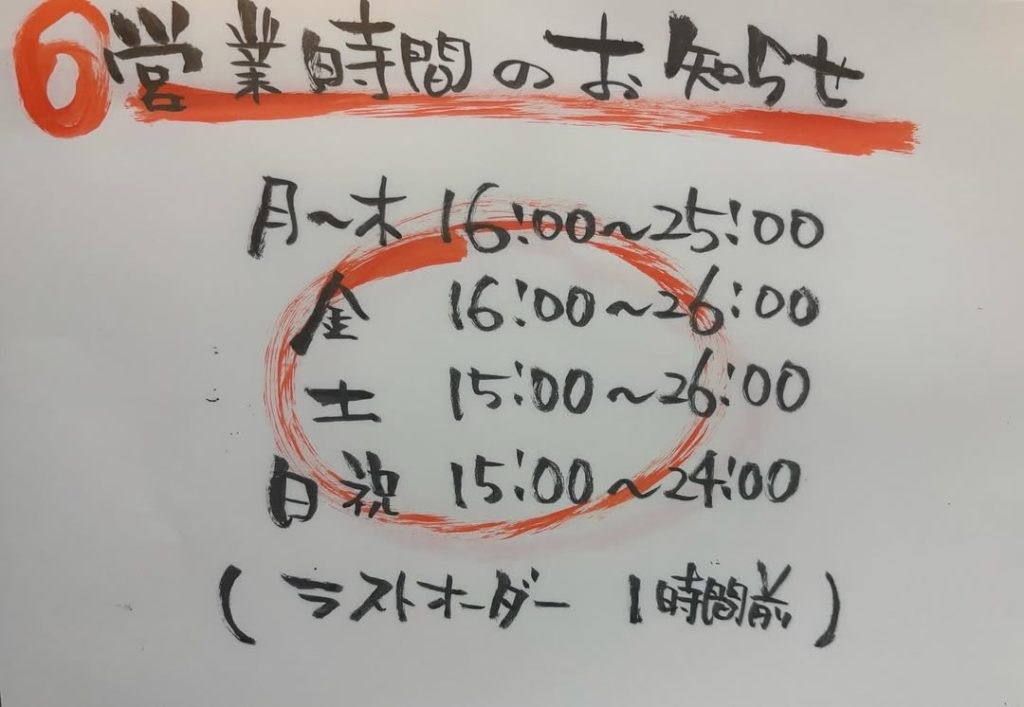 営業時間のお知らせ
月～木 16:00～25:00
金 16:00～26:00
土 15:00～26:00
日祝 15:00～24:00
(ラストオーダー 1時間前)